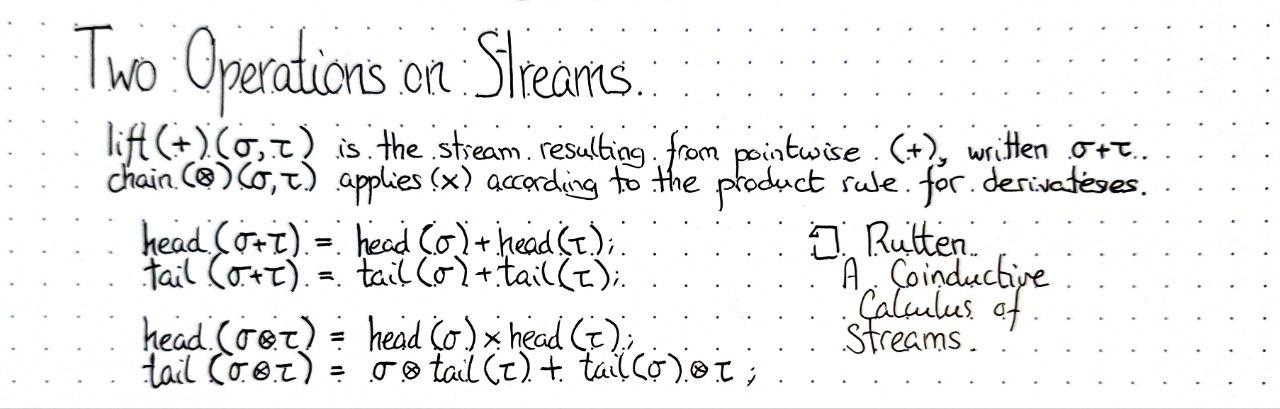 Two Operations on Streams.
lift(+)(σ,τ) is the stream resulting from pointwise (+), written σ+τ.
chain(⊗)(σ,τ) applies (×) according to the product rule for derivateses.
head(σ+τ) = head(σ)+head(τ);
tail(σ+τ) = tail(σ)+tail(τ);
head(σ⊗τ) = head(σ)×head(τ);
tail(σ⊗τ) = σ⊗tail(τ) + tail(σ)⊗τ ;
J. Rutten
A Coinductive
Calculus of
Streams.